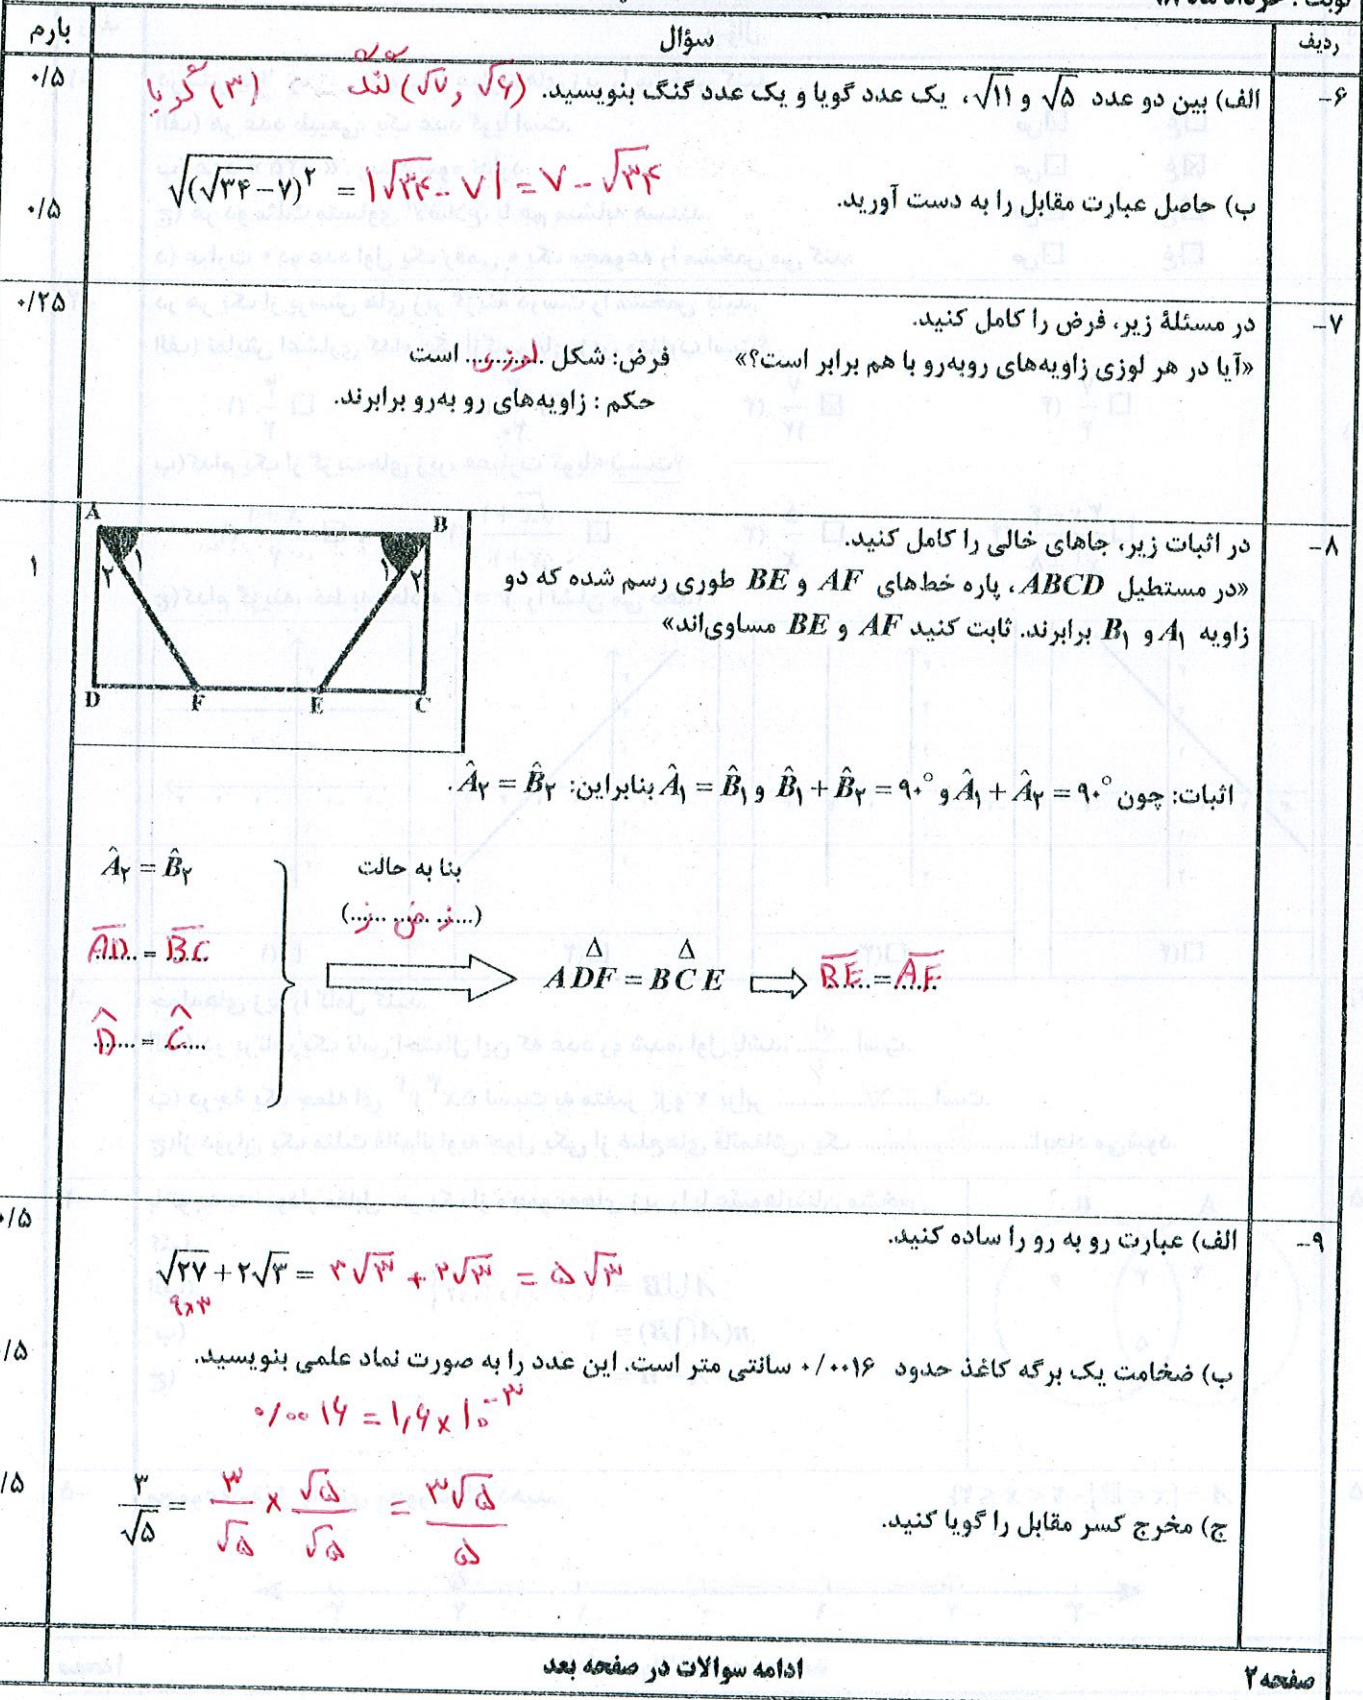 ردیف سؤال بارم
۶- الف) بین دو عدد √۵ و √۱۱ ، یک عدد گویا و یک عدد گنگ بنویسید. (√۷ , √۶) گنگ (۳) گویا ۰/۵
ب) حاصل عبارت مقابل را به دست آورید. √((√۳۴-۷)^۲) = |√۳۴-۷| = ۷-√۳۴ ۰/۵
۷- در مسئلهٔ زیر، فرض را کامل کنید. ۰/۲۵
«آیا در هر لوزی زاویه‌های روبه‌رو با هم برابر است؟» فرض: شکل ..لوزی.... است
حکم : زاویه‌های رو به‌رو برابرند.
۸- در اثبات زیر، جاهای خالی را کامل کنید. ۱
«در مستطیل ABCD، پاره خط‌های AF و BE طوری رسم شده که دو
زاویه A₁ و B₁ برابرند. ثابت کنید AF و BE مساوی‌اند»
A B
۲ ۱ ۱ ۲
D F E C
اثبات: چون Â₁ + Â₂ = ۹۰° و B̂₁ + B̂₂ = ۹۰° و Â₁ = B̂₁ بنابراین: Â₂ = B̂₂ .
Â₂ = B̂₂
بنا به حالت
(...ز ض ز...)
AD = BC
ADF = BCE
BE = AF
D̂ = Ĉ
۹- الف) عبارت رو به رو را ساده کنید. ۰/۵
√۲۷ + ۲√۳ = ۳√۳ + ۲√۳ = ۵√۳
۹×۳
ب) ضخامت یک برگه کاغذ حدود ۰/۰۰۱۶ سانتی متر است. این عدد را به صورت نماد علمی بنویسید. /۵
۰/۰۰۱۶ = ۱,۶ × ۱۰^-۳
ج) مخرج کسر مقابل را گویا کنید. ۳/√۵ = ۳/√۵ × √۵/√۵ = ۳√۵/۵ /۵
صفحه ۲ ادامه سوالات در صفحه بعد